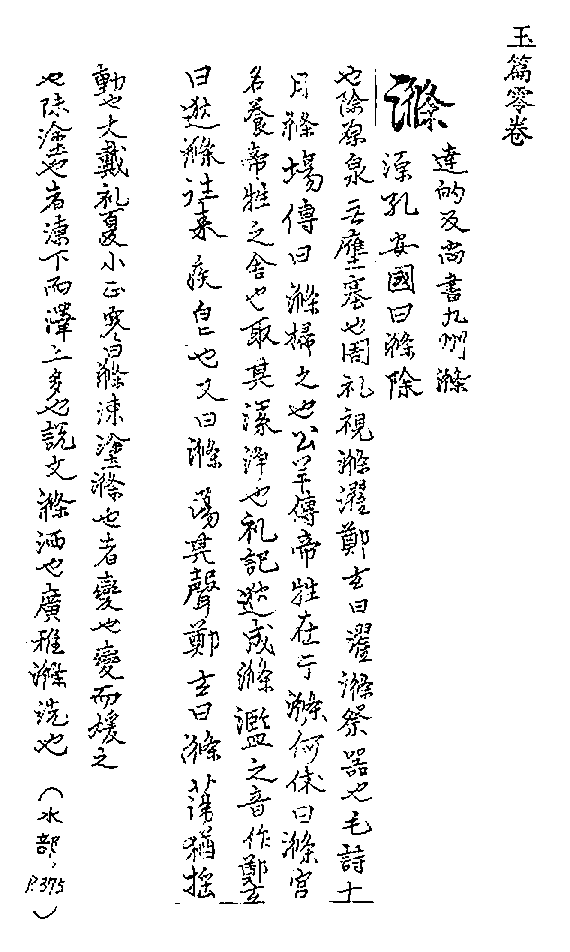 玉篇零卷
滌
達的反尚書九州滌
源孔安國曰滌除
也除源泉无壅塞也周礼視滌濯鄭玄曰濯滌祭器也毛詩十
月滌場傳曰滌掃之也公羊傳帝牲在于滌何休曰滌宮
名養帝牲之舍也取其潔净也礼記狄成滌濫之音作鄭玄
曰狄滌往来疾皃也又曰滌蕩其聲鄭玄曰滌蕩猶揺
動也大戴礼夏小正寒日滌涷塗滌也者變也變而煖之
也涷塗也者涷下而澤上多也説文滌洒也廣雅滌洗也
(水部, P.375)